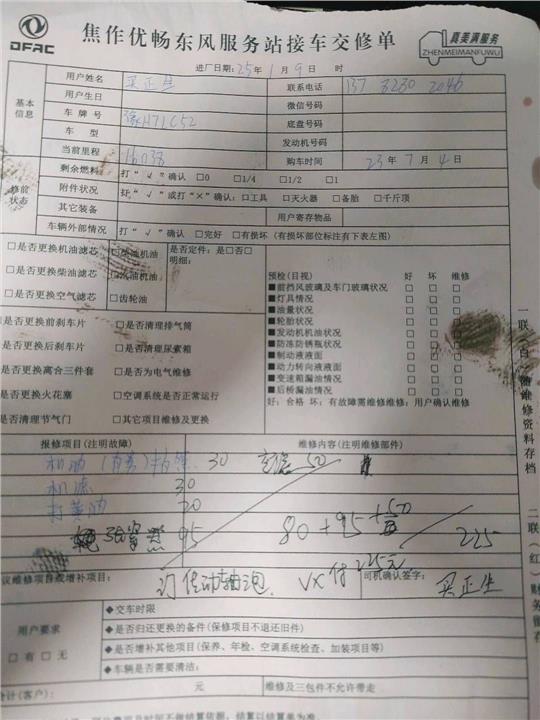 DFAC
焦作优畅东风服务站接车交修单
真美满服务
ZHENMEIMANFUWU
进厂日期:25年1月9日 时
基本信息
用户姓名 买正生 联系电话 137 3230 2046
用户生日 微信号码
车 牌 号 豫H71C52 底盘号码
车 型 发动机号码
当前里程 16038 购车时间 23年7月4日
修前状态
剩余燃料 打“√”确认 □0 □1/4 □1/2 □1
附件状况 打“√”或打“×”确认:□工具 □灭火器 □备胎 □千斤顶
其它装备 用户寄存物品
车辆外部情况 打“√”确认 □完好 □有损坏 (有损坏部位标注有下表左图)
□是否更换机油滤芯 □柴油机油 是否定件:是□否□
明细:
□是否更换柴油滤芯 □汽油机油
□是否更换空气滤芯 □齿轮油
预检(目视) 好 坏 维修
■前挡风玻璃及车门玻璃状况 □ □ □
■灯具情况 □ □ □
■油量状况 □ □ □
■轮胎状况 □ □ □
■发动机机油状况 □ □ □
■防冻防锈瓶状况 □ □ □
■制动液液面 □ □ □
■动力转向液液面 □ □ □
■变速箱漏油情况 □ □ □
■后桥漏油情况 □ □ □
好:合格 坏:有故障需维修维修:用户确认维修
□是否更换前刹车片 □是否清理排气筒
□是否更换后刹车片 □是否清理尿素箱
□是否更换离合三件套 □是否为电气维修
□是否更换火花塞 □空调系统是否正常运行
□是否清理节气门 □其它项目维修及更换
报修项目(注明故障) 维修内容(注明维修部件)
机油 30 50
机滤 30
打黄油 20
95 80+95+50 225
议维修项目或增补项目: 司机确认签字:
传动轴 VX付225元 买正生
用户要求
□有 □无
◆交车时限
◆是否归还更换的备件(保修项目不退还旧件)
◆是否增补其他项目(保养、年检、空调系统检查、加装项目等)
◆车辆是否需要清洁:
合计(客户): 元 维修及三包件不允许带走
一联(白)
维修资料存档
二联(红)